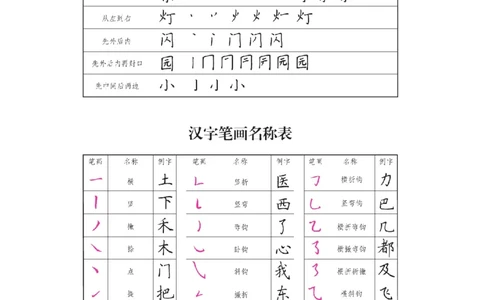 从左到右 灯 丶 丷 火 灯
先外后内 闪 丶 冂 门 闪 闪
先外后内再封口 园 丨 冂 冂 园
先中间后两边 小 亅 小 小
汉字笔画名称表
笔画 名称 例字 笔画 名称 例字 笔画 名称 例字
一 横 土 竖折 医 横折钩 力
丨 竖 下 竖弯 西 竖弯钩 巴
丿 撇 禾 弯钩 了 横折弯钩 几
㇏ 捺 木 卧钩 心 横撇弯钩 都
丶 点 门 斜钩 我 横折折撇 及
提 把 撇折 东 横斜钩 飞